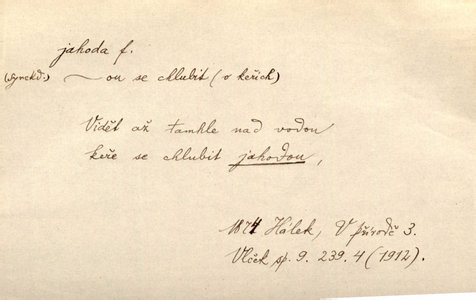 jahoda f.
(synekd.) ~ou se chlubit (o keřích)
Vidět až tamhle nad vodou
keře se chlubit jahodou,
1874 Hálek, V přírodě 3.
Vlček sp. 9. 239. 4 (1912).